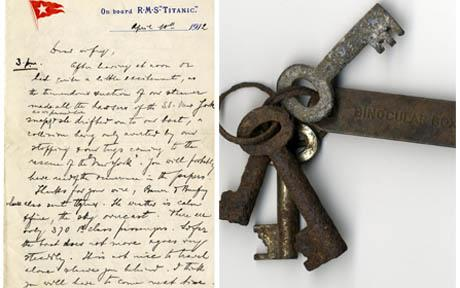 On board R.M.S "TITANIC".
April 10th 1912
Dear wifey,
3. pm. After leaving at noon or
had quite a little excitement, as
the tremendous suction of our steamer
made all the hawsers of the SS. New York
snap & she drifted on to our boat, a
collision being only averted by our
stopping & our tugs coming to the
rescue of the "New York". You will probably
have read the occurence in the papers.
Thanks for your wire,
have also sent theirs. The weather is calm
& fine, the sky overcast. There are
only 370 1st class passengers. So far
the boat does not move & goes very
steadily. It is not nice to travel
alone & leave you behind. I think
you will have to come next time.
BINOCULAR BO